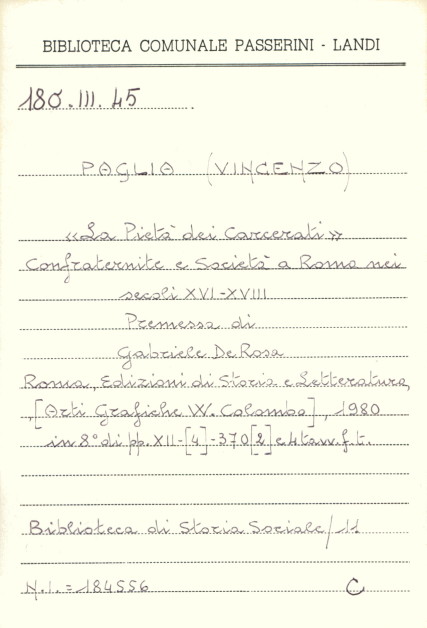 BIBLIOTECA COMUNALE PASSERINI - LANDI
180.III.45
PAGLIA (VINCENZO)
«La Pietà dei Carcerati»
Confraternite e Società a Roma nei
secoli XVI-XVIII
Premessa di
Gabriele De Rosa
Roma, Edizioni di Storia e Letteratura,
[Arti Grafiche W. Colombo], 1980
in 8° di pp. XII-[4]-370[2] e 4 tavv. f.t.
Biblioteca di Storia Sociale/11
N.I. = 184556 C